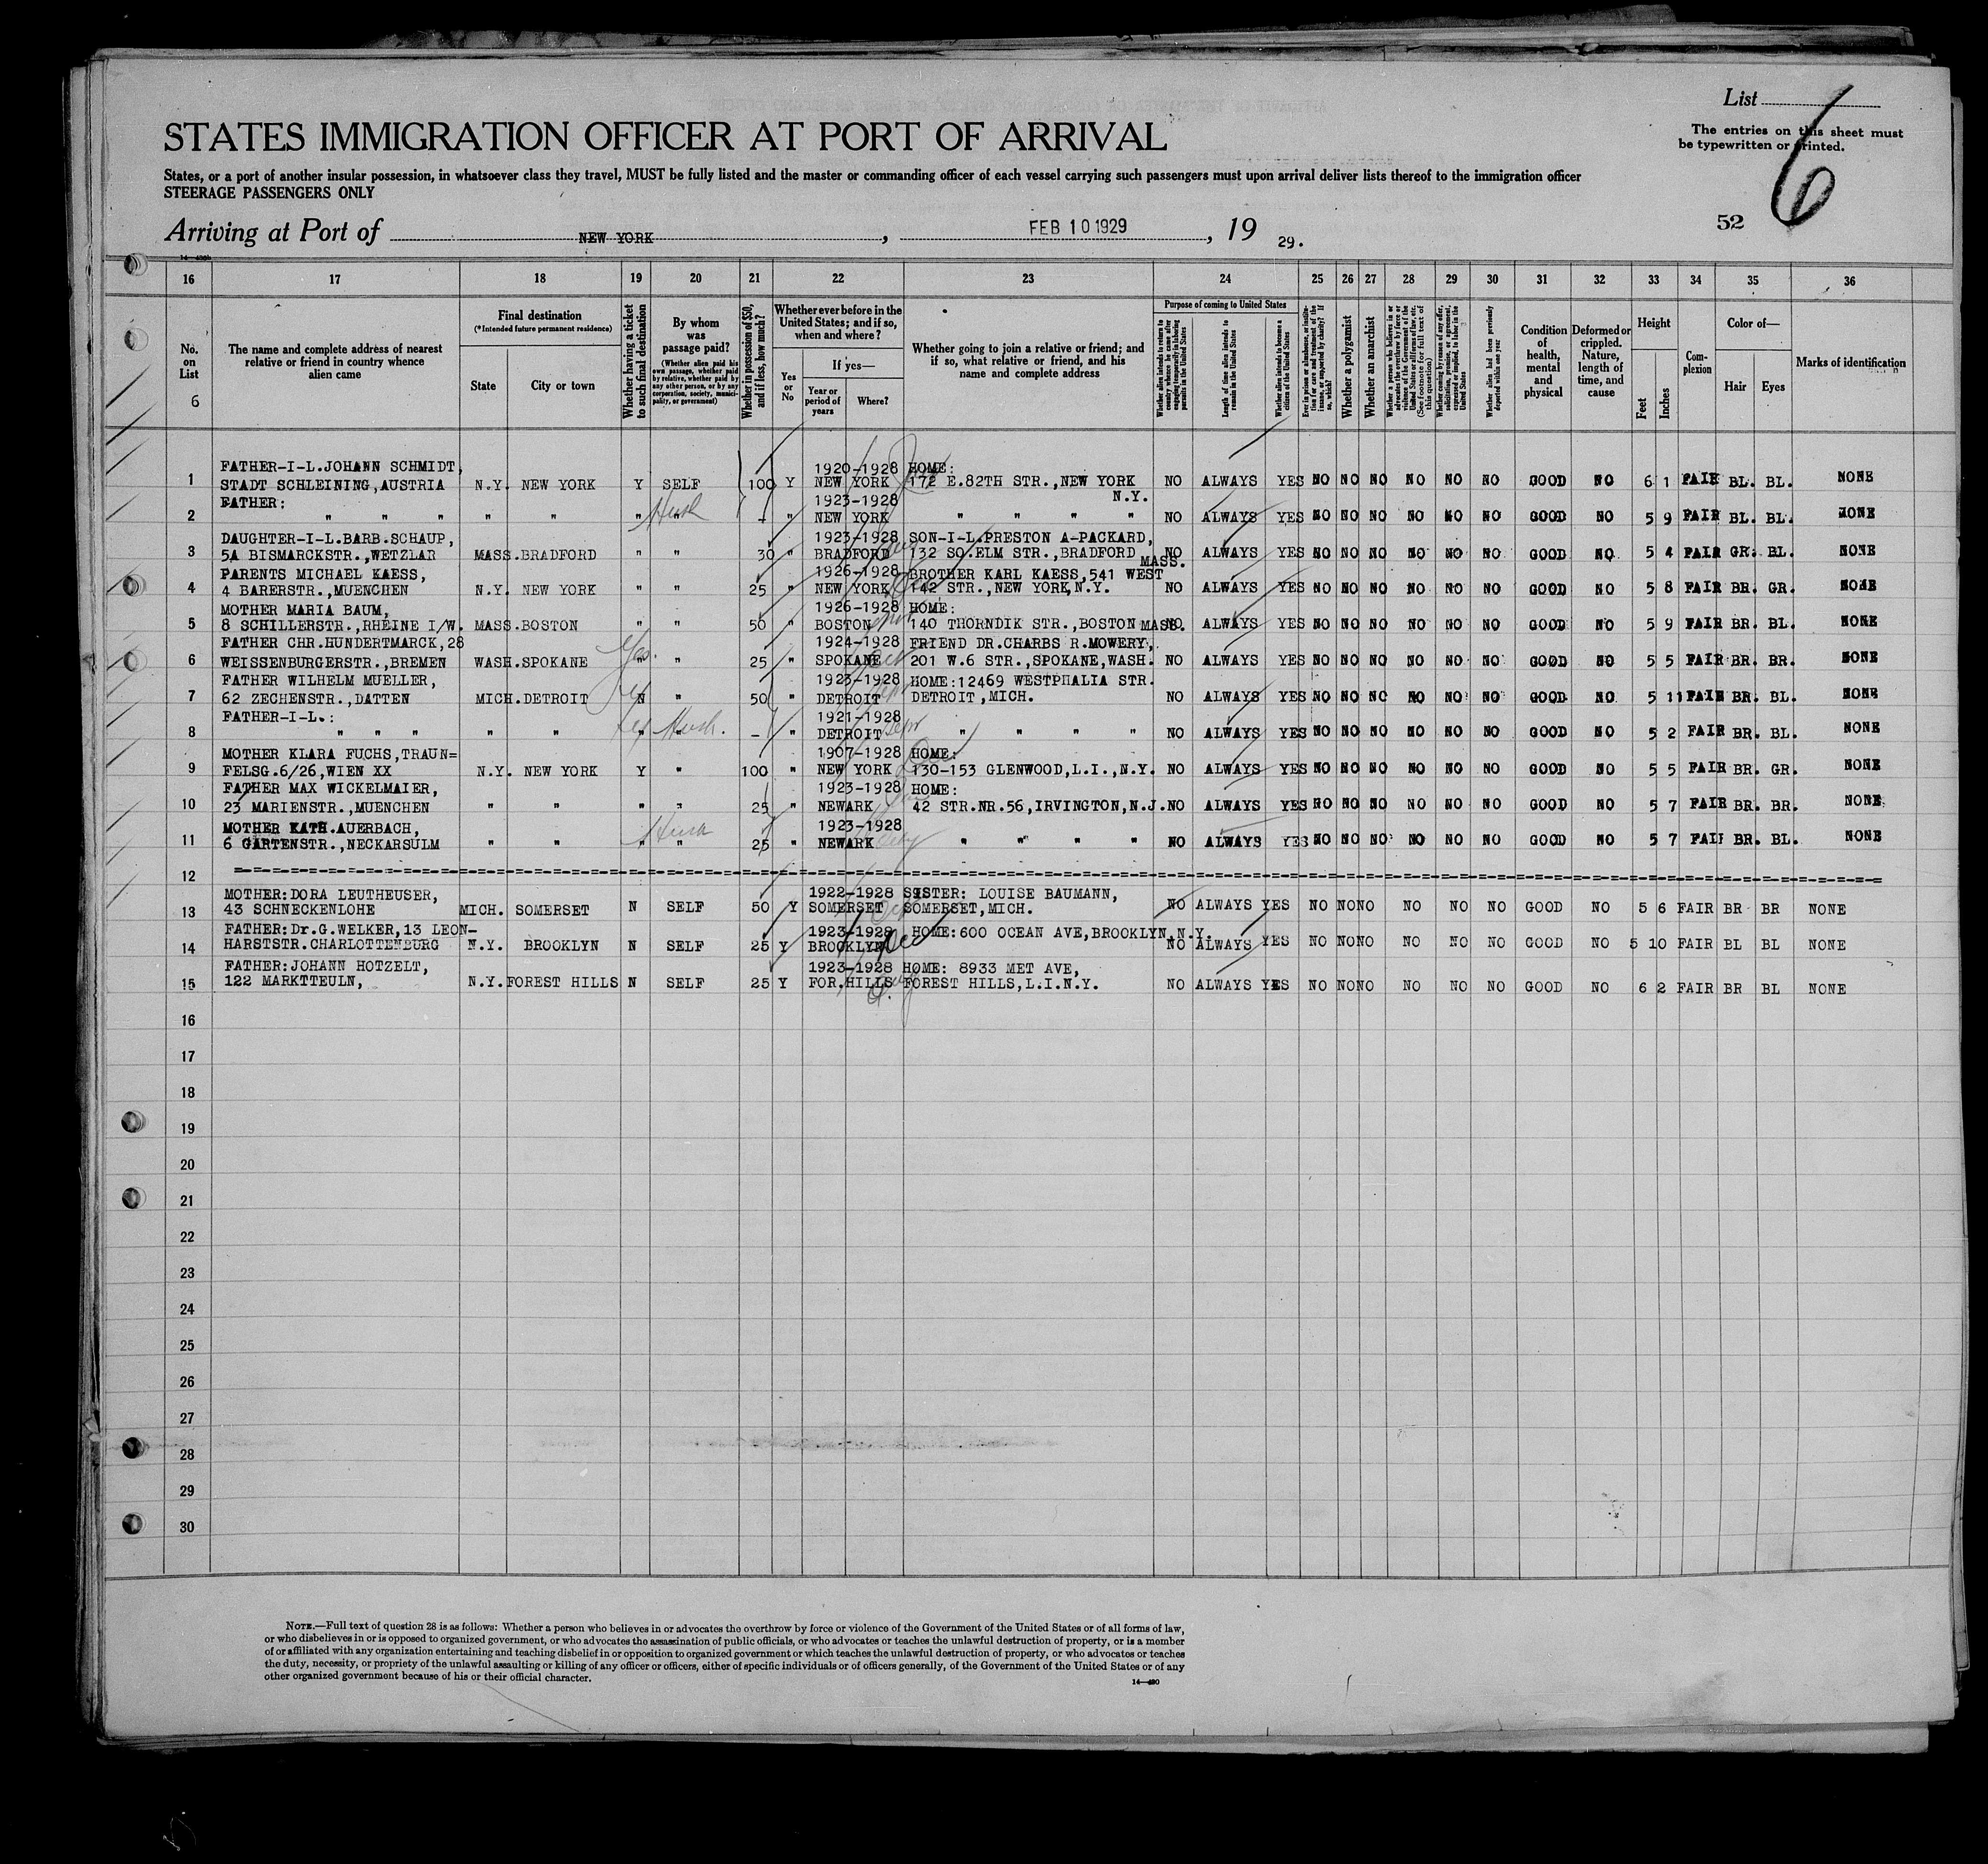 List
6
The entries on this sheet must
be typewritten or printed.
STATES IMMIGRATION OFFICER AT PORT OF ARRIVAL
States, or a port of another insular possession, in whatsoever class they travel, MUST be fully listed and the master or commanding officer of each vessel carrying such passengers must upon arrival deliver lists thereof to the immigration officer
STEERAGE PASSENGERS ONLY
52
Arriving at Port of NEW YORK, FEB 10 1929, 19 29.
16 17 18 19 20 21 22 23 24 25 26 27 28 29 30 31 32 33 34 35 36
No. on List
6
The name and complete address of nearest relative or friend in country whence alien came
Final destination
(*Intended future permanent residence)
State
City or town
Whether having a ticket to such final destination
By whom was passage paid?
(Whether alien paid his own passage, whether paid by relative, whether paid by any other person, or by any corporation, society, municipality, or government)
Whether in possession of $50, and if less, how much?
Whether ever before in the United States; and if so, when and where?
Yes or No
If yes—
Year or period of years
Where?
Whether going to join a relative or friend; and if so, what relative or friend, and his name and complete address
Purpose of coming to United States
Whether alien intends to return to country whence he came after engaging temporarily in laboring pursuits in the United States
Length of time alien intends to remain in the United States
Whether alien intends to become a citizen of the United States
Ever in prison or almshouse, or institution for care and treatment of the insane, or supported by charity? If so, which?
Whether a polygamist
Whether an anarchist
(See footnote for full text of this question)
Whether alien had been previously deported within one year
Condition of health, mental and physical
Deformed or crippled. Nature, length of time, and cause
Height
Feet
Inches
Complexion
Color of—
Hair
Eyes
Marks of identification
FATHER-I-L.JOHANN SCHMIDT, 1920-1928 HOME:
1 STADT SCHLEINING,AUSTRIA N.Y. NEW YORK Y SELF 100 Y NEW YORK 172 E.82TH STR.,NEW YORK NO ALWAYS YES NO NO NO NO NO NO GOOD NO 6 1 FAIR BL. BL. NONE
FATHER: 1923-1928 N.Y.
2 " " " " " " Husb - " NEW YORK " " " " NO ALWAYS YES NO NO NO NO NO NO GOOD NO 5 9 FAIR BL. BL. NONE
DAUGHTER-I-L.BARB.SCHAUP, 1923-1928 SON-I-L.PRESTON A-PACKARD,
3 5A BISMARCKSTR.,WETZLAR MASS.BRADFORD " " 30 " BRADFORD 132 SO.ELM STR.,BRADFORD MASS. NO ALWAYS YES NO NO NO NO NO NO GOOD NO 5 4 FAIR GR. BL. NONE
PARENTS MICHAEL KAESS, 1926-1928 BROTHER KARL KAESS,541 WEST
4 4 BARERSTR.,MUENCHEN N.Y. NEW YORK " " 25 " NEW YORK 142 STR.,NEW YORK,N.Y. NO ALWAYS YES NO NO NO NO NO NO GOOD NO 5 8 FAIR BR. GR. NONE
MOTHER MARIA BAUM, 1926-1928 HOME:
5 8 SCHILLERSTR.,RHEINE I/W. MASS.BOSTON " " 50 " BOSTON 140 THORNDIK STR.,BOSTON MASS. NO ALWAYS YES NO NO NO NO NO NO GOOD NO 5 9 FAIR BR. BL. NONE
FATHER CHR.HUNDERTMARCK,28 1924-1928 FRIEND DR.CHARBS R.MOWERY,
6 WEISSENBURGERSTR.,BREMEN WASH.SPOKANE Yes " " 25 " SPOKANE 201 W.6 STR.,SPOKANE,WASH. NO ALWAYS YES NO NO NO NO NO NO GOOD NO 5 5 FAIR BR. BR. NONE
FATHER WILHELM MUELLER, 1923-1928 HOME:12469 WESTPHALIA STR.
7 62 ZECHENSTR.,DATTEN MICH.DETROIT N " 50 " DETROIT DETROIT,MICH. NO ALWAYS YES NO NO NO NO NO NO GOOD NO 5 11 FAIR BR. BL. NONE
FATHER-I-L.: 1921-1928
8 " " " " " " Husb. - " DETROIT " " " " NO ALWAYS YES NO NO NO NO NO NO GOOD NO 5 2 FAIR BR. BL. NONE
MOTHER KLARA FUCHS,TRAUN= 1907-1928 HOME:
9 FELSG.6/26,WIEN XX N.Y. NEW YORK Y " 100 " NEW YORK 130-153 GLENWOOD,L.I.,N.Y. NO ALWAYS YES NO NO NO NO NO NO GOOD NO 5 5 FAIR BR. GR. NONE
FATHER MAX WICKELMAIER, 1923-1928 HOME:
10 23 MARIENSTR.,MUENCHEN " " " " 25 " NEWARK 42 STR.NR.56,IRVINGTON,N.J. NO ALWAYS YES NO NO NO NO NO NO GOOD NO 5 7 FAIR BR. BR. NONE
MOTHER KATH.AUERBACH, 1923-1928
11 6 GARTENSTR.,NECKARSULM " " " Husb " 25 " NEWARK " " " " NO ALWAYS YES NO NO NO NO NO NO GOOD NO 5 7 FAIR BR. BL. NONE
12
MOTHER:DORA LEUTHEUSER, 1922-1928 SISTER: LOUISE BAUMANN,
13 43 SCHNECKENLOHE MICH. SOMERSET N SELF 50 Y SOMERSET SOMERSET,MICH. NO ALWAYS YES NO NO NO NO NO NO GOOD NO 5 6 FAIR BR BR NONE
FATHER:Dr.G.WELKER,13 LEON- 1923-1928 HOME:600 OCEAN AVE,BROOKLYN,N.Y.
14 HARSTSTR.CHARLOTTENBURG N.Y. BROOKLYN N SELF 25 Y BROOKLYN Dec NO ALWAYS YES NO NO NO NO NO NO GOOD NO 5 10 FAIR BL BL NONE
FATHER:JOHANN HOTZELT, 1923-1928 HOME: 8933 MET AVE,
15 122 MARKTTEULN, N.Y. FOREST HILLS N SELF 25 Y FOR.HILLS FOREST HILLS,L.I.N.Y. NO ALWAYS YES NO NO NO NO NO NO GOOD NO 6 2 FAIR BR BL NONE
16
17
18
19
20
21
22
23
24
25
26
27
28
29
30
NOTE.—Full text of question 28 is as follows: Whether a person who believes in or advocates the overthrow by force or violence of the Government of the United States or of all forms of law,
or who disbelieves in or is opposed to organized government, or who advocates the assassination of public officials, or who advocates or teaches the unlawful destruction of property, or is a member
of or affiliated with any organization entertaining and teaching disbelief in or opposition to organized government or which teaches the unlawful destruction of property, or who advocates or teaches
the duty, necessity, or propriety of the unlawful assaulting or killing of any officer or officers, either of specific individuals or of officers generally, of the Government of the United States or of any
other organized government because of his or their official character.
14—420